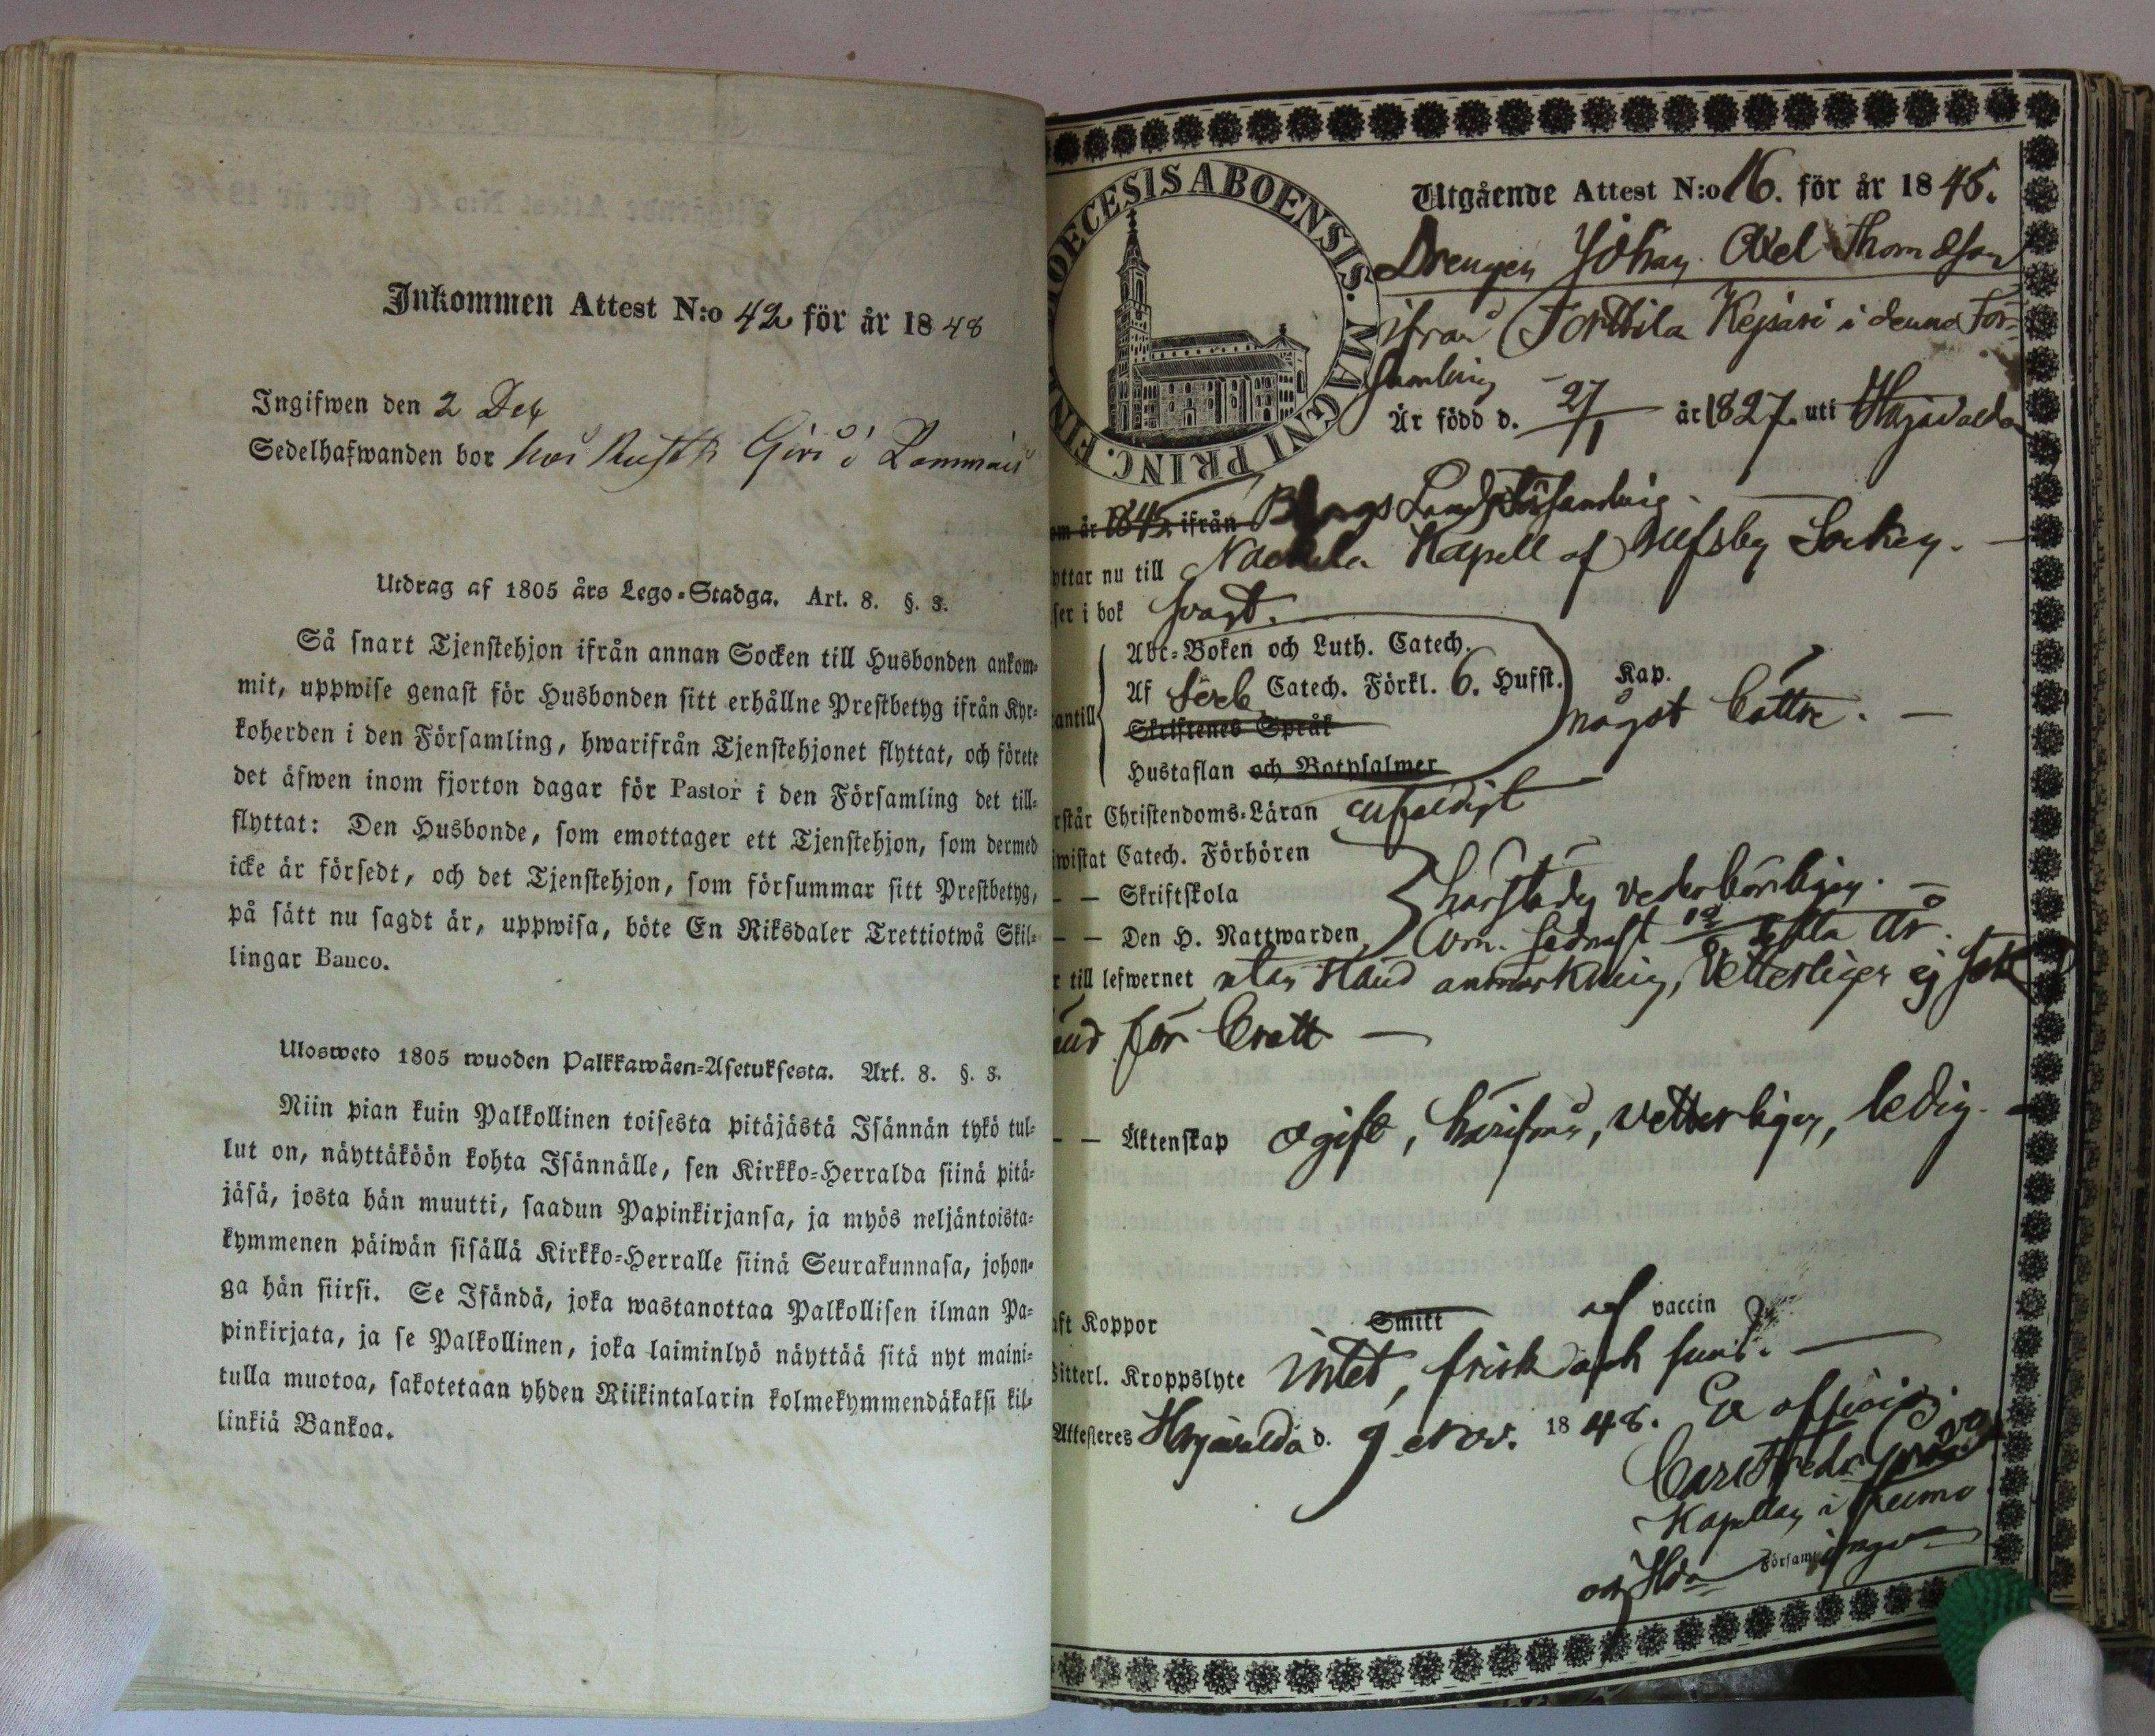 Inkommen Attest N:o 42 för år 1848
Ingifwen den 2 Dec
Sedelhafwanden bor hos Rusth Giri i
Utdrag af 1805 års Lego-Stadga. Art. 8. §. 3.
Så snart Tjenstehjon ifrån annan Socken till Husbonden ankom-
mit, uppwise genast för Husbonden sitt erhållne Prestbetyg ifrån Kyr-
koherden i den Församling, hwarifrån Tjenstehjonet flyttat, och förete
det äfwen inom fjorton dagar för Pastor i den Församling det till-
flyttat: Den Husbonde, som emottager ett Tjenstehjon, som dermed
icke är försedt, och det Tjenstehjon, som försummar sitt Prestbetyg,
på sätt nu sagdt är, uppwisa, böte En Riksdaler Trettiotwå Skil-
lingar Banco.
Ulosweto 1805 wuoden Palkkawäen-Asetuksesta. Art. 8. §. 3.
Niin pian kuin Palkollinen toisesta pitäjästä Isännän tykö tul-
lut on, näyttäköön kohta Isännälle, sen Kirkko-Herralda siinä pitä-
jäsä, josta hän muutti, saadun Papinkirjansa, ja myös neljäntoista-
kymmenen päiwän sisällä Kirkko-Herralle siinä Seurakunnasa, johon-
ga hän siirsi. Se Isändä, joka wastanottaa Palkollisen ilman Pa-
pinkirjata, ja se Palkollinen, joka laiminlyö näyttää sitä nyt maini-
tulla muotoa, sakotetaan yhden Riikintalarin kolmekymmendäkaksi kil-
linkiä Bankoa.
OECESIS ABOENSIS. MAGNI PRINC. FIN
Utgående Attest N:o 16. för år 1848.
Drengen Johan Axel Thomasson
ifrån Torttila Kejsari i denna För-
samling
Är född d. 27/1 år 1827. uti Harjavalda
om år 1845. ifrån B Lands Församling
yttar nu till Nackila Kapell af Ulfsby Socken.
ser i bok svagt.
antill
Abc-Boken och Luth. Catech.
Af Sereb Catech. Förkl. 6. Hufst. Kap.
Skriftenes Språk något bättre.
Hustaflan och Botpsalmer
rstår Christendoms-Läran enfaldigt
iwistat Catech. Förhören
— — Skriftskola härstädes vederbörligen.
— — Den H. Nattwarden Om. sednast detta år.
r till lefwernet utan känd anmärkning, Vetterligen ej
för brott
— — Äktenskap ogift, härifrån, vetterligen, ledig.
aft Koppor Smitt af vaccin
Witterl. Kroppslyte intet, frisk och sund.
Attesteres Harjavalda d. 9 Nov. 1848. Ex officio
Carl Fredr
Kapellan i Kumo
och Hda Försam lingar